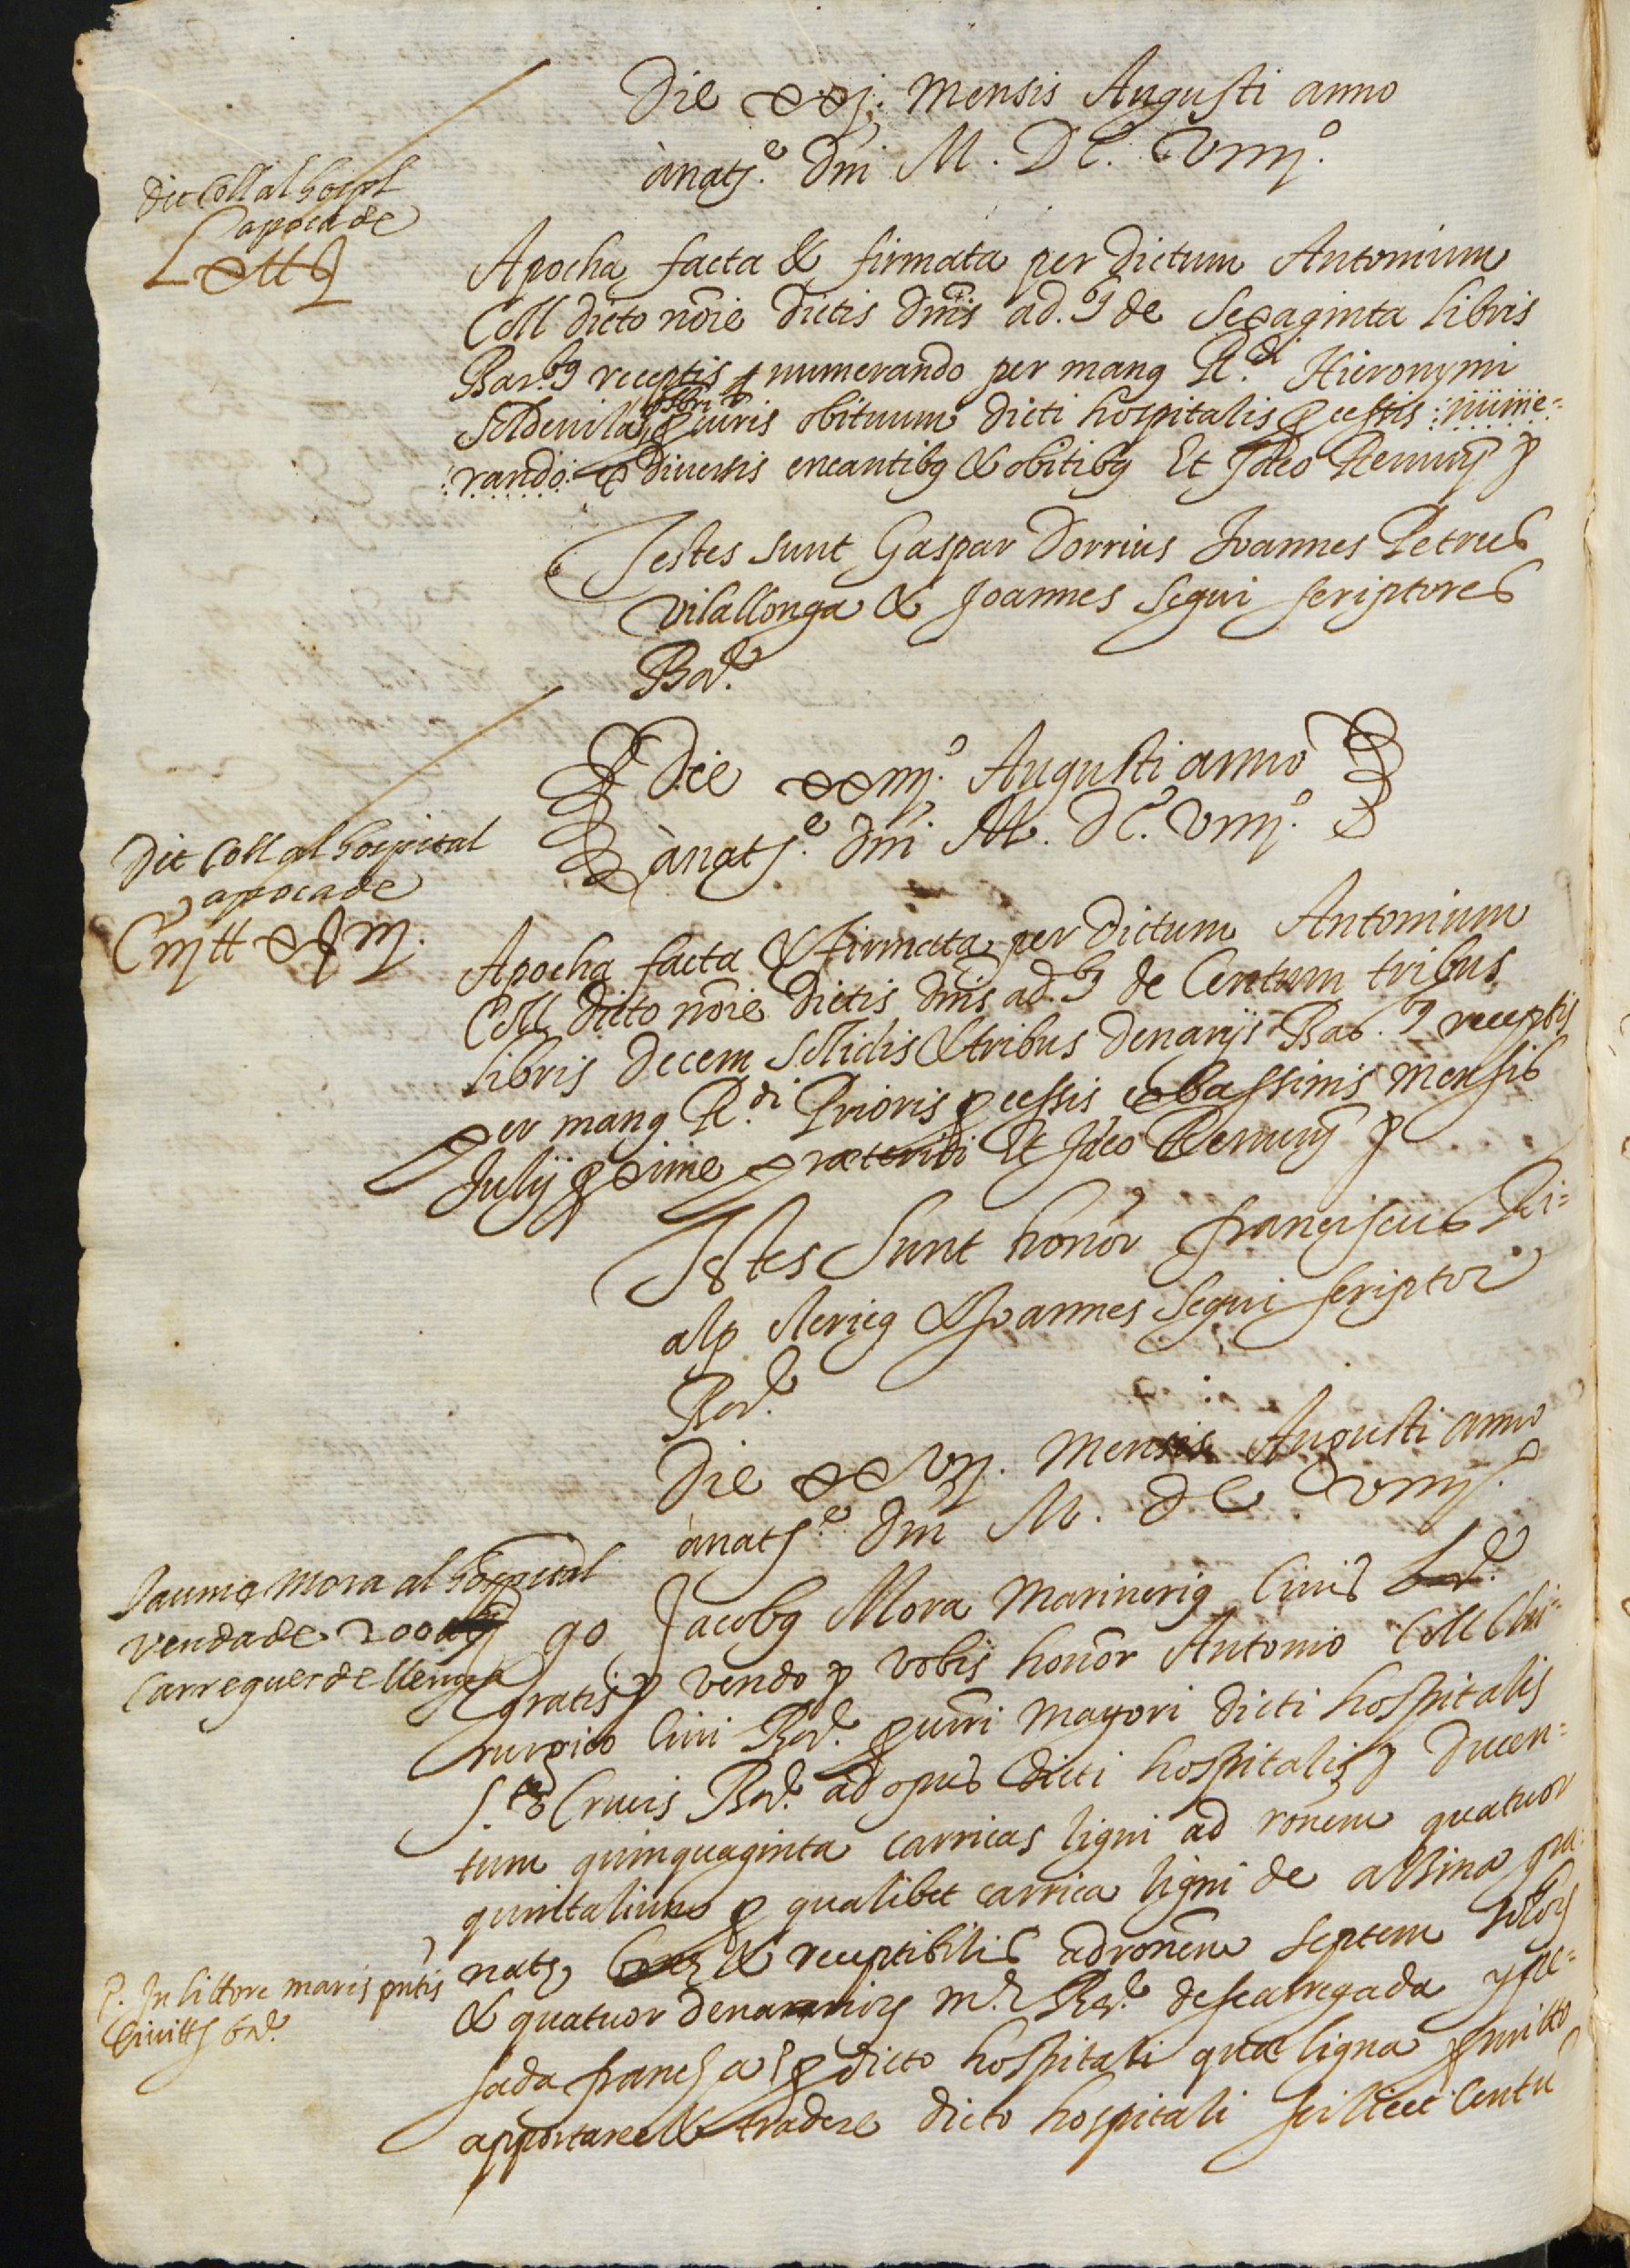 Die xxj. Mensis Augusti anno
ànatj.e Dni M. DC. Viiij.o
Dit Coll al hospl
apoca de
Lx ll s
Apocha facta & firmata per dictum Antonium
Coll dicto noïe dictis dnis ad.os de Sexaginta libris
Bar.os receptis numerando per manq R.di Hieronymi
Soldevila pbri & iuris obituum dicti hospitalis pcessis nume=
rando ex diversis encantibq & obitibq Et Ideo Renunj p
Testes sunt Gaspar Dorrius Joannes Petrus
Vilallonga & Joannes Segui scriptores
Bar.e
Die xxiiij.o Augusti anno
ànatj.e Dni M. DC. Viiij.o
Dit Coll al hospital
apoca de
Ciij ll x s iij.
Apocha facta & firmata per dictum Antonium
Coll dicto noïe dictis dnis ad.os de Centum tribus
libris decem Solidis & tribus denarijs Bar.os receptis
per manq R.di Prioris pcessis ex bassinis mensis
Julij pxime praeteriti Et Ideo Renunj p
Testes Sunt honor Franciscus Ri=
alp clericq & Joannes Segui scriptor
Bar.e
Die xxvij. mensis Augusti anno
ànatj.e Dni M. DC Viiij.o
Jaume Mora al hospital
venda de 200
carregues de llenya
Ego Jacobq Mora Marinerig Civis Bar.e
gratis p vendo p vobis honor Antonio Coll Chi=
rurgico Civi Bar.e priori Mayori dicti hospitalis
S.tae Crucis Bar.e ad opus dicti hospitalis p Ducen=
tum quinquaginta carricas ligni ad ronem quatuor
quintalium p qualibet carrica ligni de alsina
& receptibilis ad ronem septem
& quatuor m.e Bar.e descarregada y pe=
sada francha p dicto hospitali quae ligna pmitto
P. In littore maris pntis
Civittj Bar.e
apportare & tradere dicto hospitali scilicet Centu